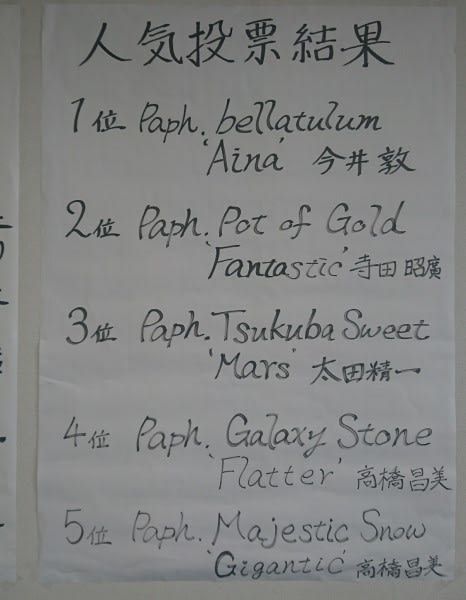 人気投票結果
1位 Paph. bellatulum
'Aina' 今井敦
2位 Paph. Pot of Gold
'Fantastic' 寺田昭廣
3位 Paph. Tsukuba Sweet
'Mars' 太田精一
4位 Paph. Galaxy Stone
'Flatter' 高橋昌美
5位 Paph. Majestic Snow
'Gigantic' 高橋昌美